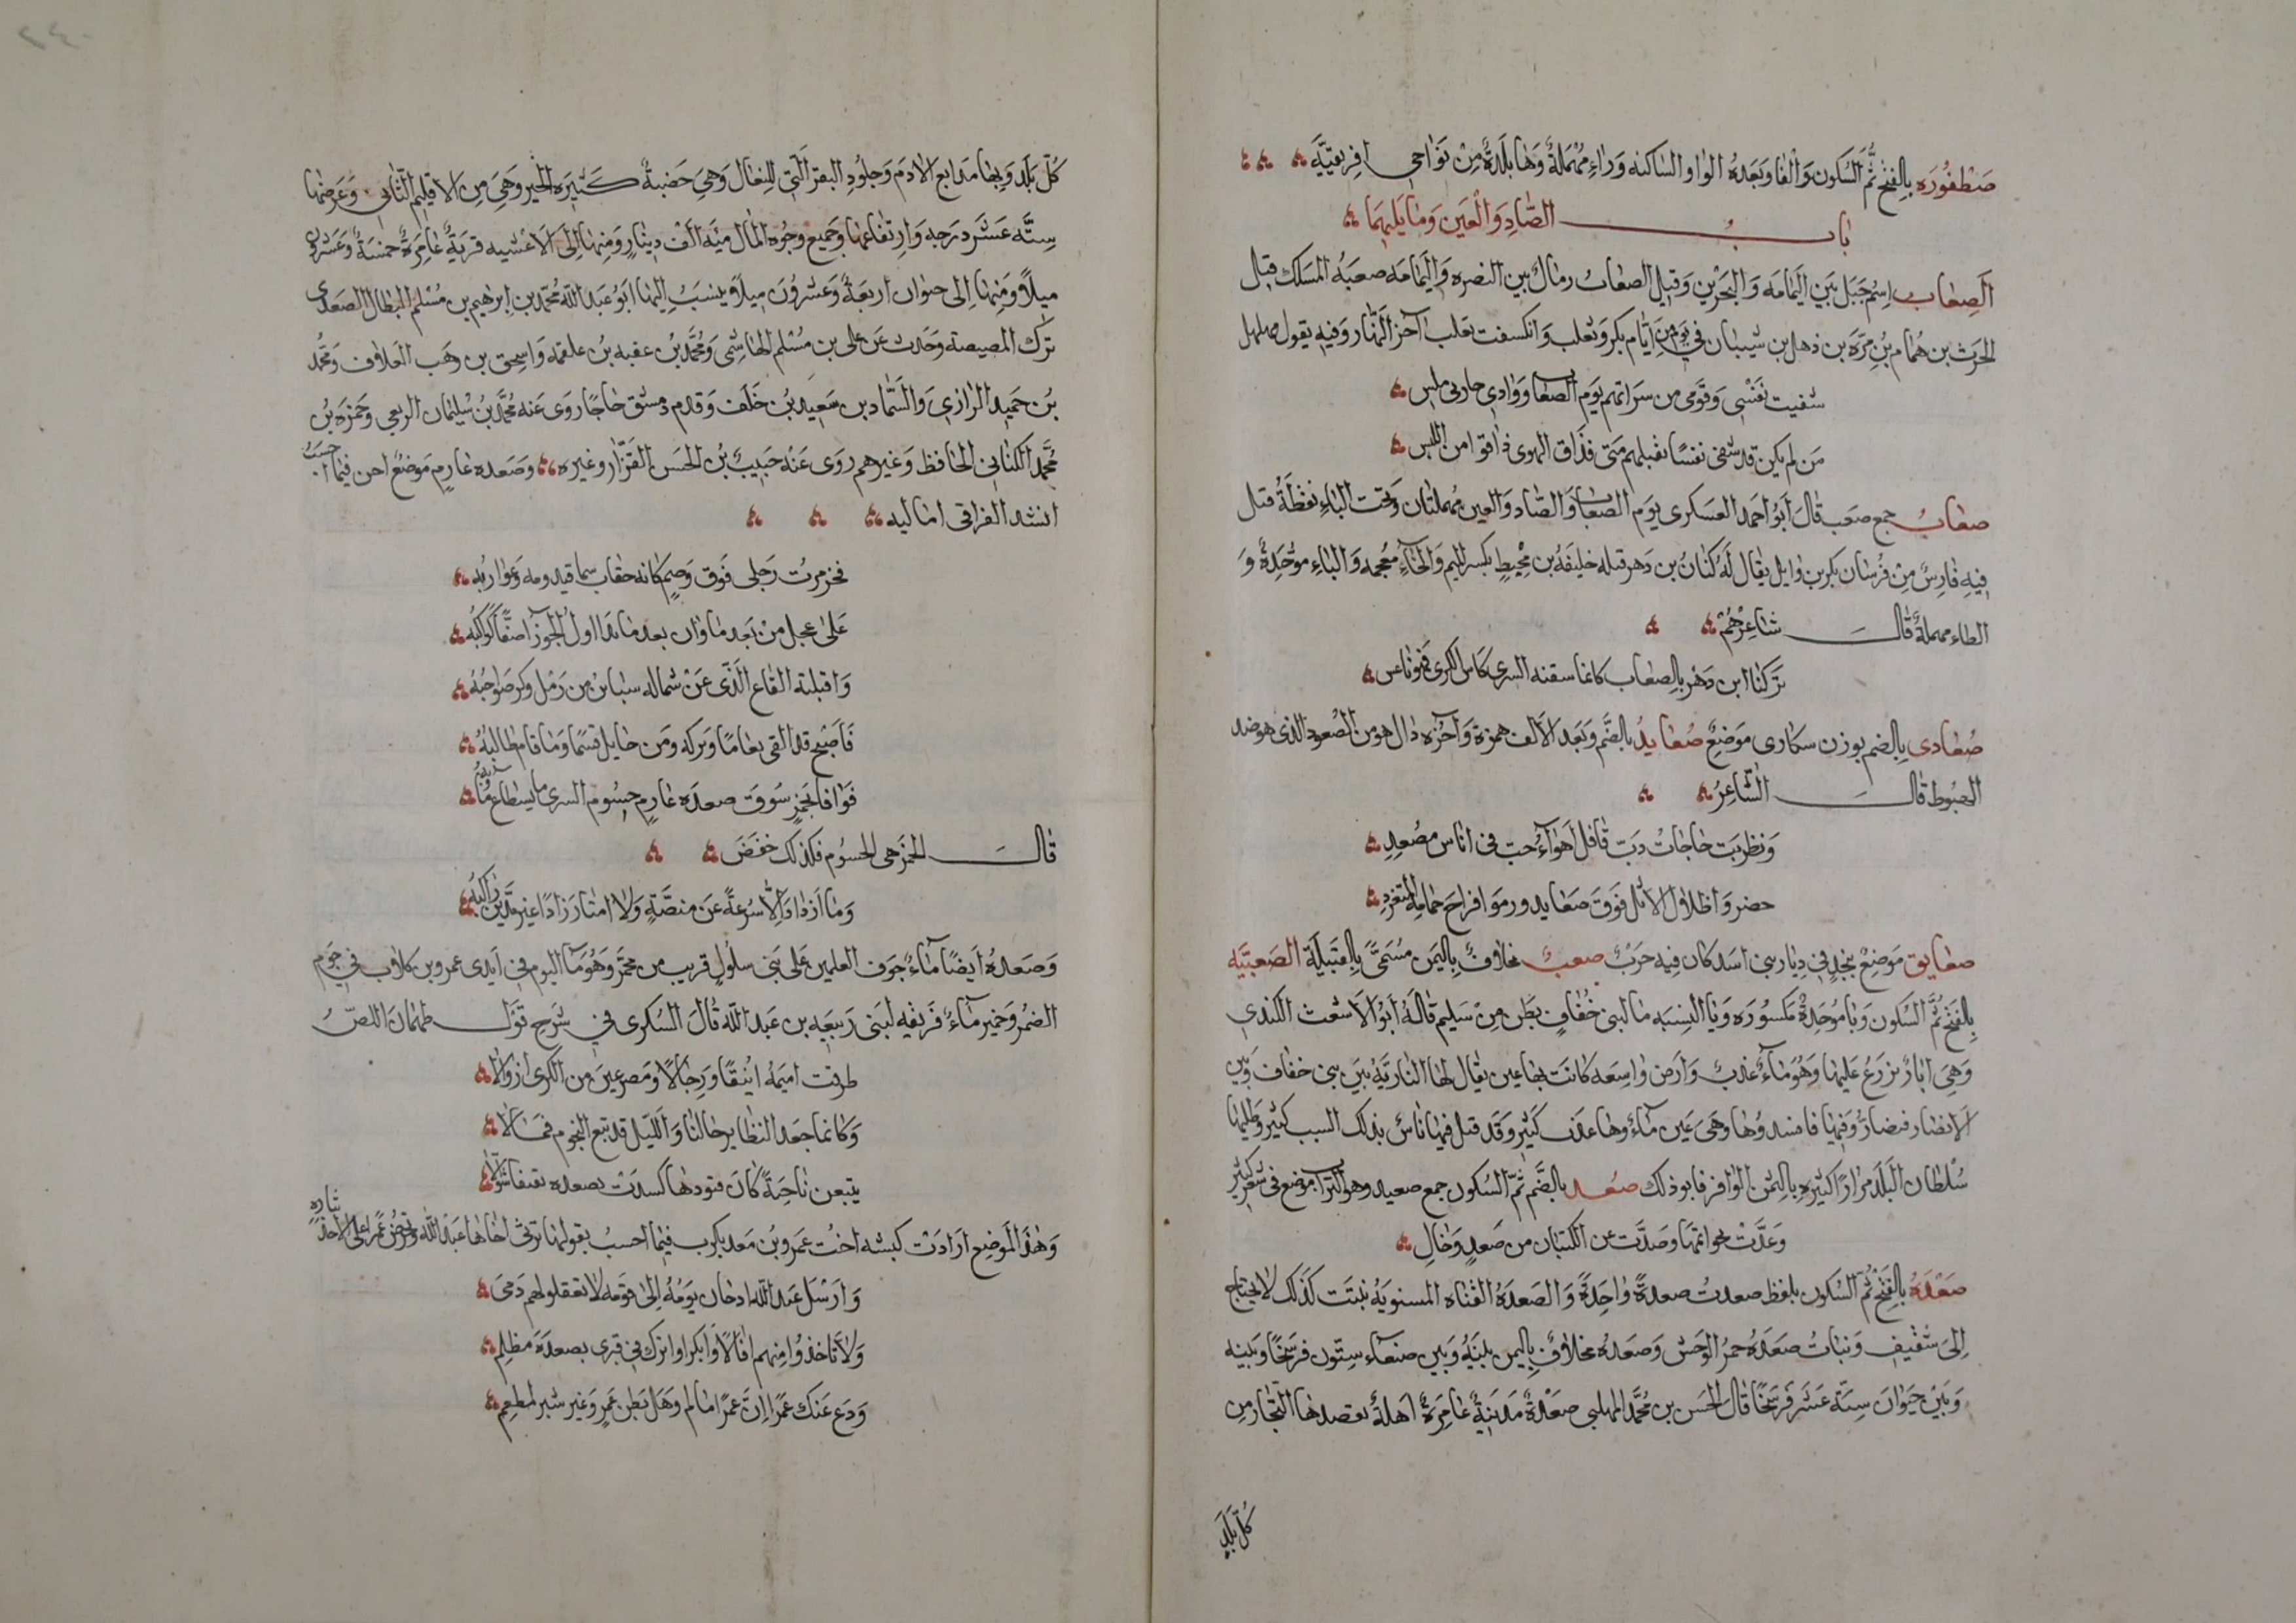 صَطْفُورَه بالفتح ثُمَّ السّكون وَالْفا وبَعدَهُ الواو الساكنه وَرَاءٍ مُهْمَلةٌ وَهَا بلَدةٌ مِنْ نَوَاحِى افريقيَّةَ
باب الصَّادِ وَالعَين وَمَا يَليهِمَا
الصِعَاب اِسْم جَبَل بَين اليَمامَه وَالبَحْرَين وَقيل الصعاب رمَالٌ بين البصره وَاليَمامَه صعبَهُ المسَلك قتل
الحرث بن هُمام بن مرّه بن ذهل بن شيبان فى يوم من ايَّام بكر وَتغلب وَانكسفت تغلب آخرَ النَّهار وَفيه يقول مهلهل
شفيت نفْسى وَقَومى من سَراتهم يوَم الصعَاب ووَادى حاربى ماس
مَن لم يكن قد شفى نفسًا بقبلهم منى فذَاق الهوى ذاقوا من اللبس
صعَابُ جمع صعب قالَ ابُو احمد العَسكرى يوَم الصعَاب وَالصَاد وَالعين مُهملتان وَتحت البَاءِ نقطَةٌ قتل
فيه فارِسٌ مِن فُرسَان بكر بن وايل يقال لَهُ كنَانُ بن دَهر قتله خليفَهُ بن مِخْيطٍ بكسر الميم وَالخاءِ مُعجمه وَالبَاءِ مَوحّدَةٌ وَ
الطاء مهملةٌ قال شاعِرهُم
تركنا ابن دَهْر بالصعَاب كانما سقته السرى كاس الكرى فهو ناعس
صُعَادى بالضم بوزن سكارى مَوضعٌ صُعَايدُ بالضَّم وَبَعد الالف همزة وَآخره دَال هو من الصُعود الذى هو ضد
الهبُوط قال الشّاعِرُ
وَنظربَت حاجات دَبّ قافل اَهوَاءَ حب فى اناس مصْعِدِ
حضر وَاظلال الاثل فَوقَ صعايد ورموَا فراخ حمامه المتغرد
صعايق مَوضعٌ بنجد فى دِيَار بنى اسد كان فيه حربٌ صعبٌ مخلافٌ باليَمن مُسَمّىً بالقَبيلَة الصَعبيَّه
بالفَتح ثمَّ السّكون وَبَا مُوحّدةٌ مَكسُورَه وَيَا النِسبَه مَا لبنى خُفافٍ بطن مِنْ سَليم قالَهُ ابُو الاشعث الكندى
وَهِىَ ابَارٌ يزرعُ عَليهَا وَهُوَ مَاءٌ عَذبٌ وَارَض وَاسِعَه كانَت بهَا عين يقال لهَا النازيَهُ بَين بنى خفاف وَبين
الانصار فتضارُّوا فيهَا فافسدُوهَا وَهىَ عين مَاءُوهَا عذب كثير وَقد قتل فيهَا نَاسٌ بذلك السبب كثير وَطلبهَا
سُلطان البَلد مرَارًا كثيره بالثمن الوَافر فابو ذلك صُعد بالضَّم ثُمّ السُكون جمع صعيد وَهو التراب مَوضع فى شعر كثير
وَعَدَّتْ نحوَ ايمنهَا وَصَدَّت عن الكثبان من صَعدٍ وَخالِ
صَعْدَهُ بالفَتح ثُمّ السُكون بلفظ صعدتُ صعدةً وَاحِدَةً وَالصَعدَةُ القناه المستويَةُ نبتَت كذلك لا يحتَاج
الى تثقِيفٍ وَبَناتُ صَعَدَهُ حمرُ الوَحش وَصَعدَهُ مخلافٌ باليمن بينَهُ وَبين صَنعَاء سِتّون فرسَخًا وَبينه
وَبَيْن خيوَانَ سِتَّه عَشر فَرسَخًا قالَ الحسَن بن مُحَمّد المهلبى صَعْدَةُ مَدينَةٌ عَامِرَةٌ آهلةٌ يقصدهَا التجّار مِن
كُلِّ بلَدٍ
كُلّ بَلَد وَبهَا مَدَابغ الادَم وَجلُودِ البقر الّتى للنعَال وَهِىَ خَصْبةٌ كَثيرَه الخير وَهِىَ مِن الاقليم الثّانى وَعَرضهَا
سِتَّه عَشَر دَرَجه وَارِتفَاعهَا وَجَميع وجُوه المال ميَه الف دينَارٍ وَمِنهَا الى الاعْشيه قريَةٌ عَامِرَةٌ خمسَةٌ وَعشرون
ميلاً وَمِنهَا الى خيوَان اربَعَةٌ وَعشرُونَ ميلاً وَينسَبُ اليهَا ابوُ عَبد اللّه مُحمّد بن ابرهيم بن مُسلم البطال الصَعدى
نزل المصيصة وَحَدث عَن على بن مُسْلم الهَاشمى وَمُحمَّد بن عقبه بن علقمه وَاسحق بن وهَب العلّاف وَمحَمّد
بن حَميد الرَّازى وَالسّماد بن سَعيد بن خَلَف وَقدم دمشق حَاجًا رَوى عنه مُحمَّد بن سُليمَان الربعى وَحمزه بن
مُحَمَّد الكنانى الحَافظ وَغيرهم رَوى عَنْه حَبيبُ بن الحسَن القزّاز وَغيره وَصَعده عَارِمٍ مَوضعٌ اخر فيما احسَبُ
انشد الفرا فى اماليه
فخزمرت رَجلى فَوق وَصمٍ كانه حقاب سما قيدومه وَغواربُه
عَلى عجل من بَعد مَا وَان بعد مَا بَدَا اول الجوزآ صَفًّا كوَاكبُه
وَاقبلته القاع الَّذى عَن شماله سباين من رَمل وَكرّ صوَاحبُهُ
فَاَصْبح قد القى بعَامًا وَبركه وَمن حَايل قسمًا وَمَا قام طالبُهُ
فَوافا بجمزٍ سُوقَ صعدَه عارِمٍ حسُوم السرى مَا يسطاع مآبُه
قال الجمز هى الحسُوم فلذلك خفضَ
وَمَا ازدَادَ الّا سُرعَةً عَن منصّةٍ وَلا امتَار زادًا غير مدّين رَاكبُه
وَصَعدَهُ ايضًا مَاءُ جَوف العلمين عَلى بنى سلُول قريب من مخمّر وَهُوَ مَا اليَوم فى ايدى عمرو بن كلاب فى جَوم
الضمر وَخمير مَاءٌ فَريقه لبَنى رَبيعَه بن عَبد اللّه قالَ السُكرى فى شرح قَول طهمَان اللصّ
طرقت اميمَهُ اينقًا وَرِحالًا وَمصرعينَ من الكرى ازوَالا
وَكانما جعد القطا برحَالنَا وَالليّل قد تبع النجوم فمَالا
يتبعن نَاجيَةً كانَ قتودهَا كسيَت بصعده نقنقا شوّالا
وَهٰذا الَموضع ارَادَتْ كبشه اختُ عمَرو بن مَعد يكرب فيمَا احسبُ بقولهَا ترثى اخاهَا عبْد اللّه وَتحرض عمرًا على الاخذ
بثاره
وَارْسَل عَبد اللّه اذ حَان يوَمُهُ الى قومه لا تعقلوا لهم دَمى
وَلا تاخذُوا مِنهم افالًا وَابكرا وَاترك فى قبرى بصعدَةَ مظلم
وَدَع عَنك عَمرًا اِنّ عَمرًا مسَالم وَهَل بَطن عَمرٍ وَغير شبر لمطعِم